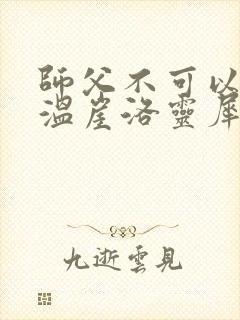 師父不可以
溫崖洛靈犀
九逝雲見